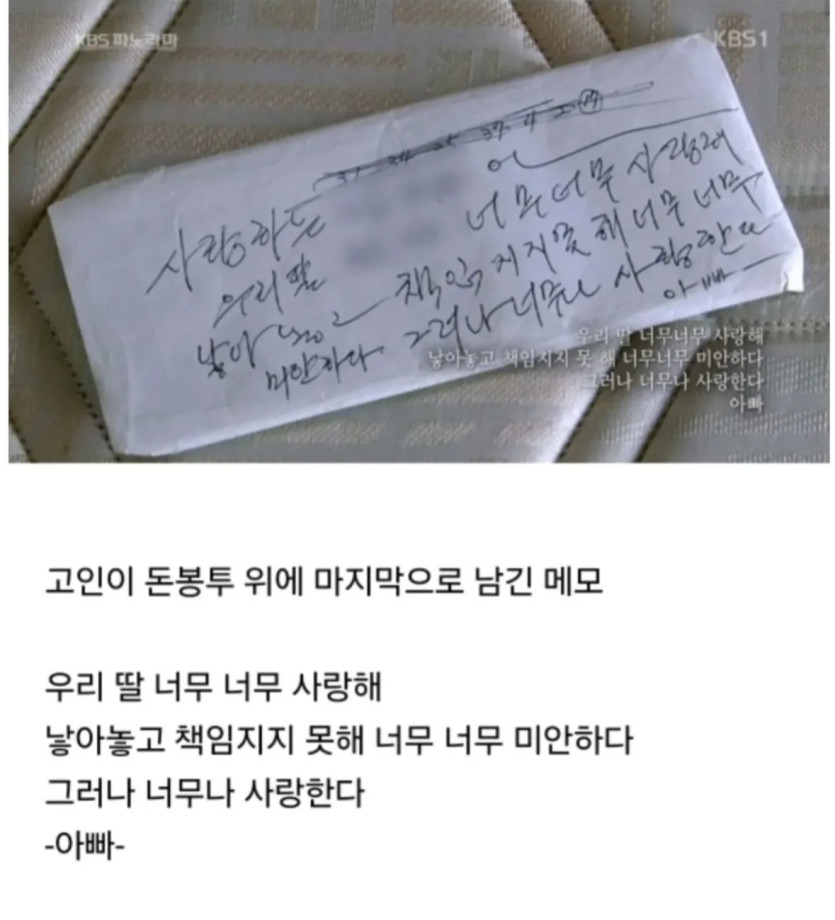 KBS 파노라마
KBS1
31 34 25 37 4 2 19
사랑하는
우리 딸 너무너무 사랑해
낳아놓고 책임지지 못해 너무 너무
미안하다 그러나 너무나 사랑한다
아빠
우리 딸 너무너무 사랑해
낳아놓고 책임지지 못 해 너무너무 미안하다
그러나 너무나 사랑한다
아빠
고인이 돈봉투 위에 마지막으로 남긴 메모
우리 딸 너무 너무 사랑해
낳아놓고 책임지지 못해 너무 너무 미안하다
그러나 너무나 사랑한다
-아빠-